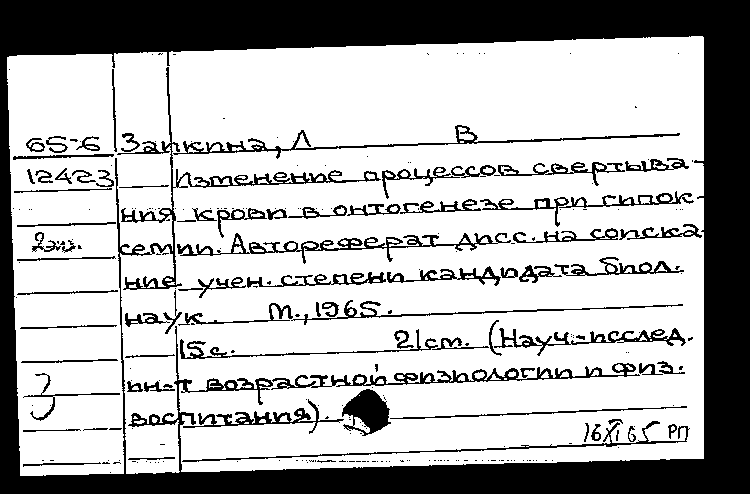 65-6 Заикина, Л В
12423 Изменение процессов свертыва-
ния крови в онтогенезе при гипок-
2экз. семии. Автореферат дисс. на соиска-
ние учен. степени кандидата биол.
наук. М., 1965.
15с. 21см. (Науч.-исслед.
ин-т возрастной физиологии и физ.
воспитания).
З
16 XI 65 РП